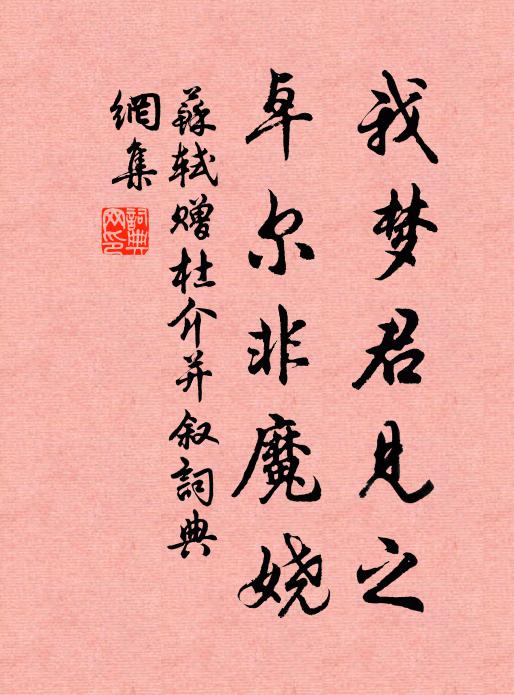 我梦君见之
卓尔非魔娆
蘇軾赠杜介并叙詞典
網集
詞典網印